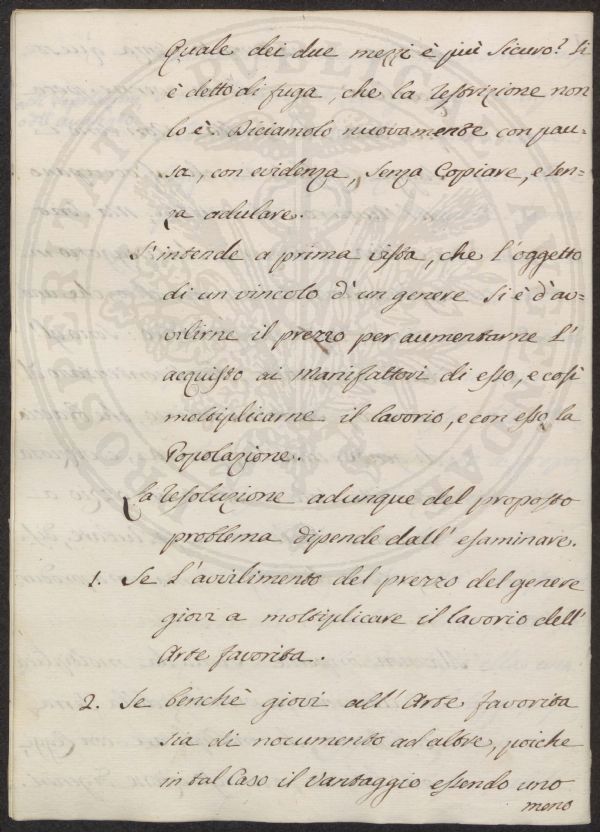 Quale dei due mezzi è più sicuro? Si
è detto di fuga, che la restrizione non
lo è. Diciamolo nuovamente con pau-
sa, con evidenza, senza Copiare, e sen-
za adulare.
S'intende a prima vista, che l'oggetto
di un vincolo d'un genere si è d'av-
vilirne il prezzo per aumentarne l'
acquisto ai Manifattori di esso, e così
moltiplicarne il lavorio, e con esso la
Popolazione.
La resoluzione adunque del proposto
problema dipende dall' esaminare.
1. Se l'avvilimento del prezzo del genere
giovi a moltiplicare il lavorio dell'
Arte favorita.
2. Se benchè giovi all' Arte favorita
sia di nocumento ad altre, poiche
in tal Caso il vantaggio essendo uno
meno